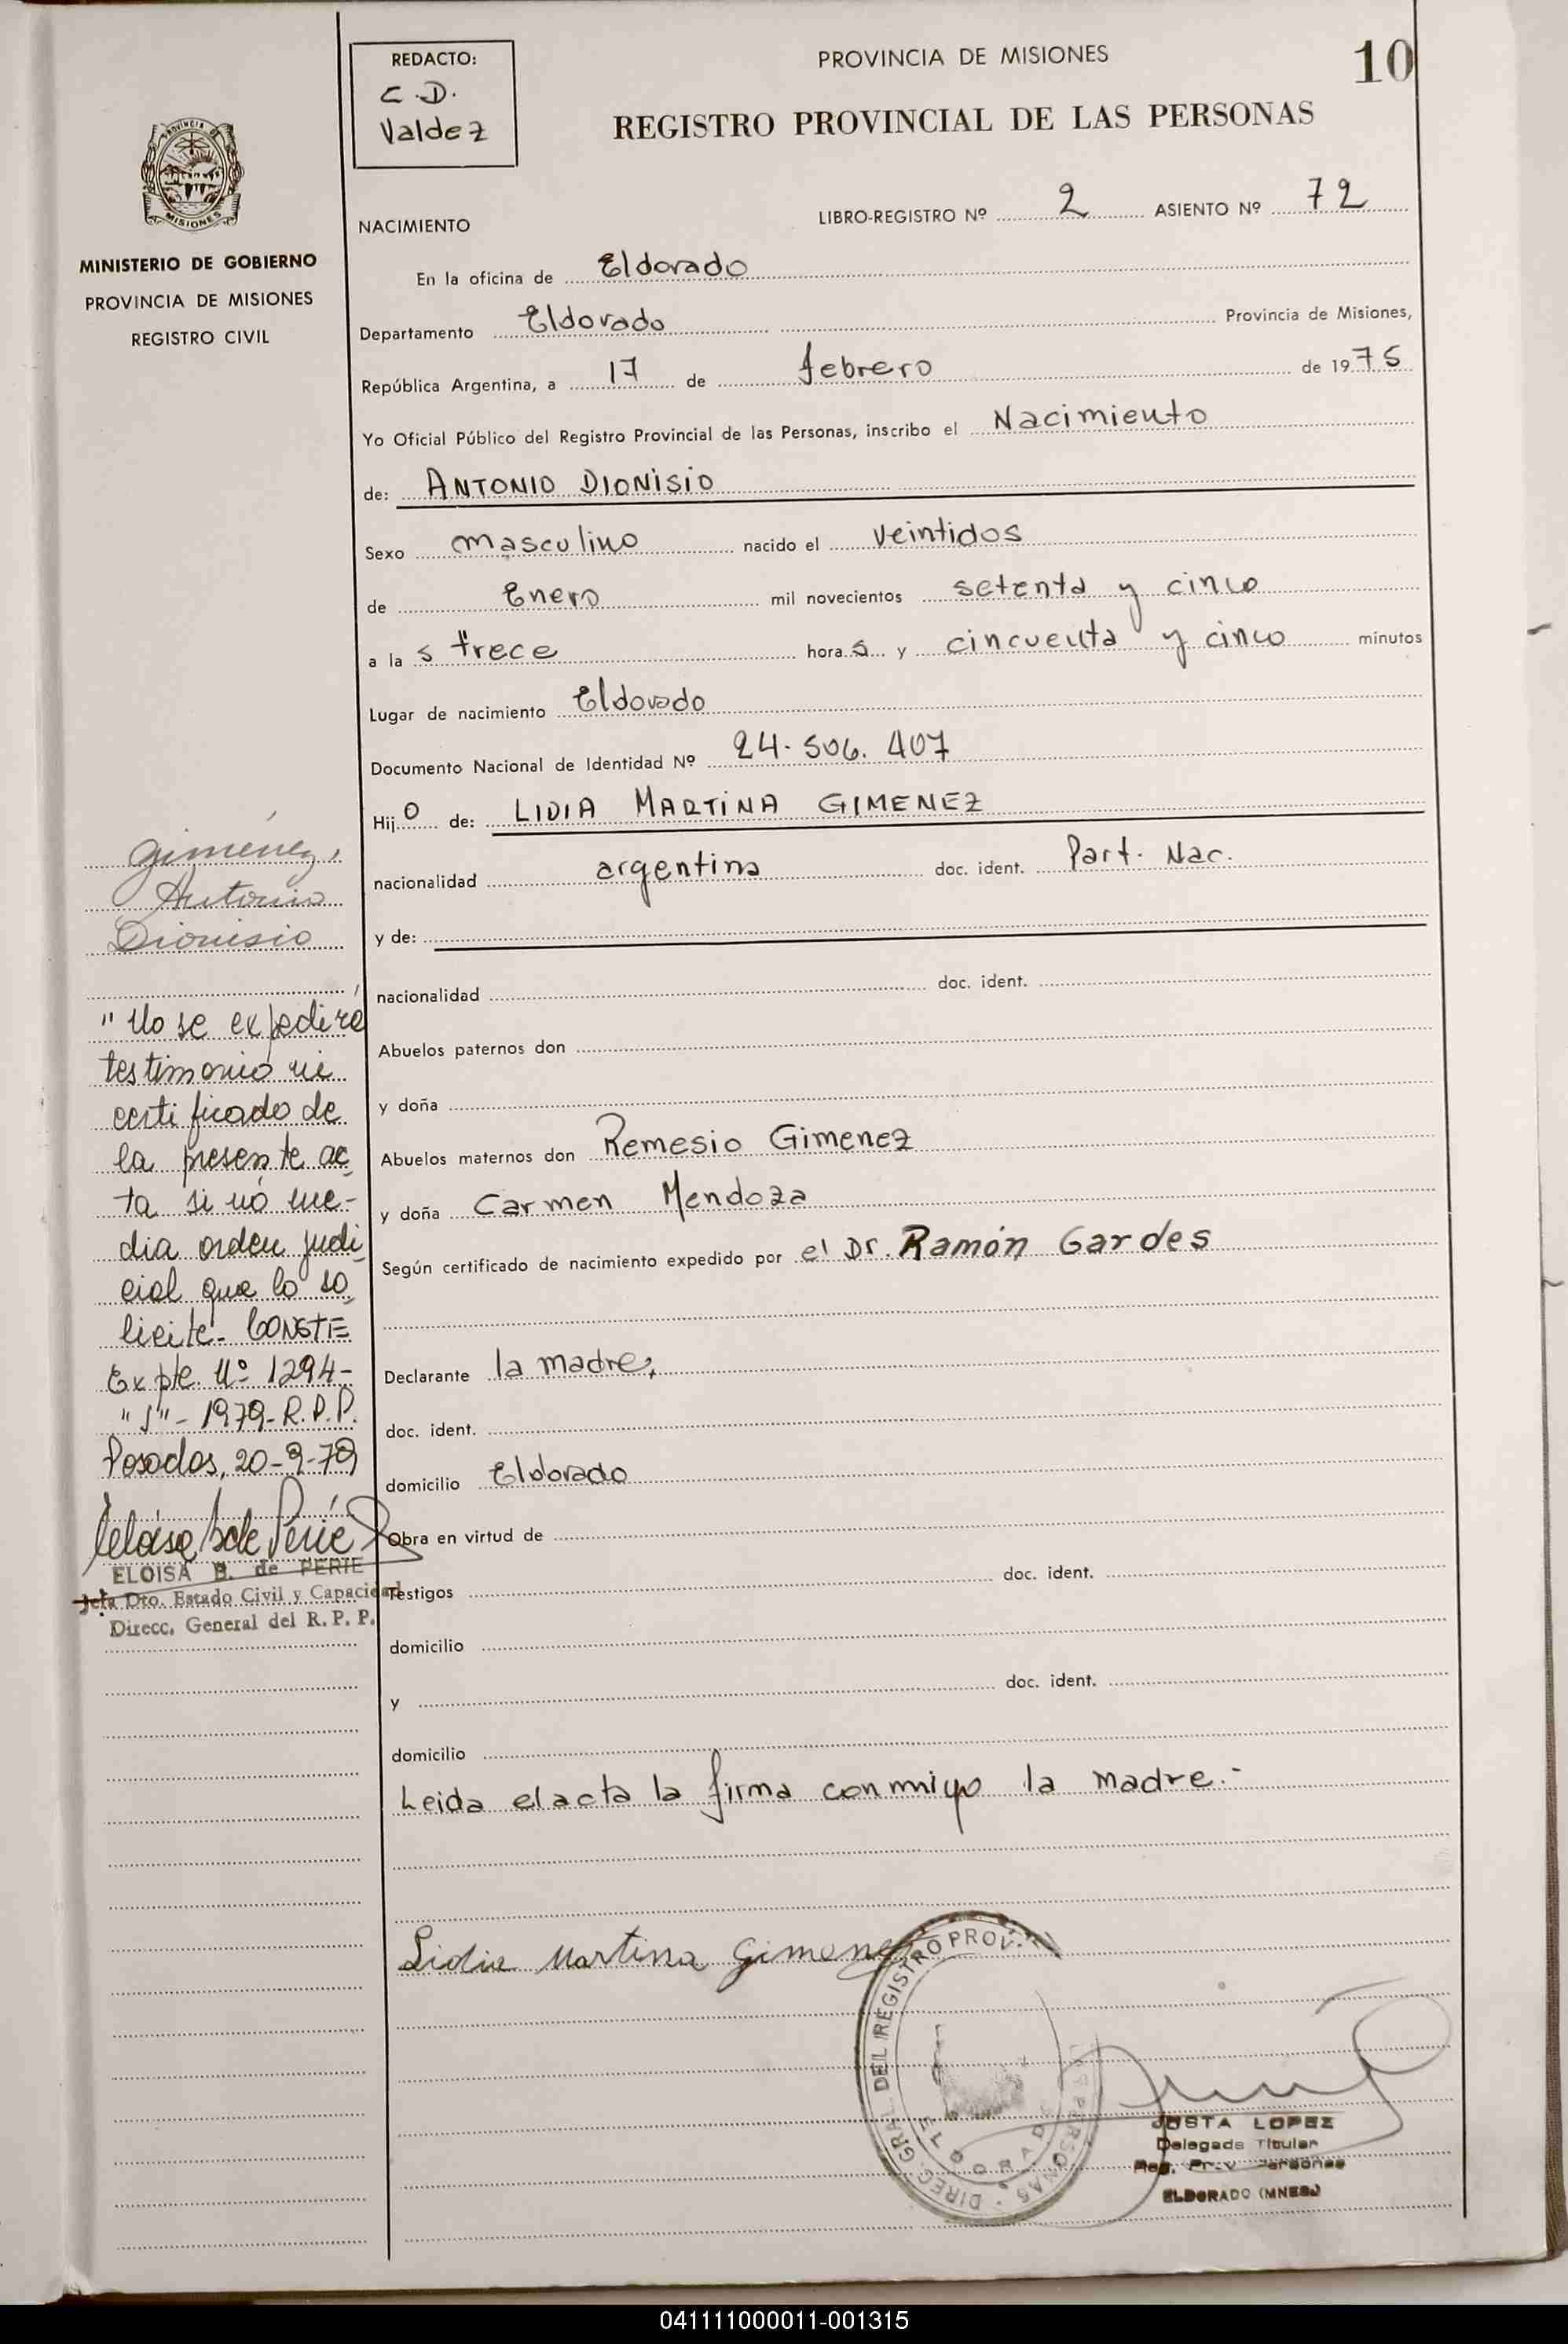 REDACTO:
C.D.
Valdez
PROVINCIA DE MISIONES
10
REGISTRO PROVINCIAL DE LAS PERSONAS
PROVINCIA DE
MISIONES
MINISTERIO DE GOBIERNO
PROVINCIA DE MISIONES
REGISTRO CIVIL
NACIMIENTO
LIBRO-REGISTRO Nº 2 ASIENTO Nº 72
En la oficina de Eldorado
Departamento Eldorado Provincia de Misiones,
República Argentina, a 17 de febrero de 1975
Yo Oficial Público del Registro Provincial de las Personas, inscribo el Nacimiento
de: ANTONIO DIONISIO
Sexo masculino nacido el veintidos
de Enero mil novecientos setenta y cinco
a la s trece hora s y cincuenta y cinco minutos
Lugar de nacimiento Eldorado
Documento Nacional de Identidad Nº 24.506.407
Hij o de: LIDIA MARTINA GIMENEZ
nacionalidad argentina doc. ident. Part. Nac.
y de:
nacionalidad doc. ident.
Abuelos paternos don
y doña
Abuelos maternos don Remesio Gimenez
y doña Carmen Mendoza
Según certificado de nacimiento expedido por el Dr. Ramón Gardes
Declarante la madre,
doc. ident.
domicilio Eldorado
Obra en virtud de
Testigos doc. ident.
domicilio
y doc. ident.
domicilio
Leida el acta la firma conmigo la madre.-
Lidia Martina Gimenez
Giménez,
Antonio
Dionisio
"No se expedirá
testimonio ni
certificado de
la presente ac
ta si nó me-
dia orden judi
cial que lo so
licite- CONSTE
Expte. Nº 1294-
"J"- 1979- R.P.P.
Posadas, 20-9-79
Eloisa B de Perié
ELOISA B. de PERIE
Jefa Dto. Estado Civil y Capacidad
Direcc. General del R. P. P.
DIREC. GRAL. DEL REGISTRO PROV. PERSONAS
ELDORADO
JUSTA LOPEZ
Delegada Titular
Reg. Prov. Personas
ELDORADO (MNES.)
041111000011-001315